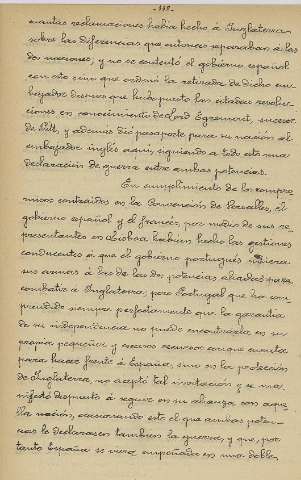 -118-
cuantas reclamaciones había hecho á Inglaterra
sobre las diferencias que entonces separaban á las
dos naciones, y no se contentó el gobierno español
con esto sino que ordenó la retirada de dicho em-
bajador despues que hubo puesto las citadas resolu-
ciones en conocimiento de Lord Egremont, sucesor
de Pitt, y además dió pasaporte para su nación al
embajador inglés aquí, siguiendo á todo esto una
declaración de guerra entre ambas potencias.
En cumplimiento de los compro-
misos contraidos en la Convención de Versalles, el
gobierno español y el francés, por medio de sus re-
presentantes en Lisboa habían hecho las gestiones
conducentes á que el gobierno portugués uniera
sus armas á las de las dos potencias aliadas para
combatir á Inglaterra; pero Portugal que ha com-
prendido siempre perfectamente que la garantía
de su independencia no puede encontrarla en su
propia pequeñez y escasos recursos con que cuenta
para hacer frente á España, sino en la protección
de Inglaterra, no aceptó tal invitación y se ma-
nifestó dispuesto á seguir en su alianza con aque-
lla nación, ocasionando esto el que ambas poten-
cias le declarasen tambien la guerra, y que, por
tanto España se viera empeñada en una doble